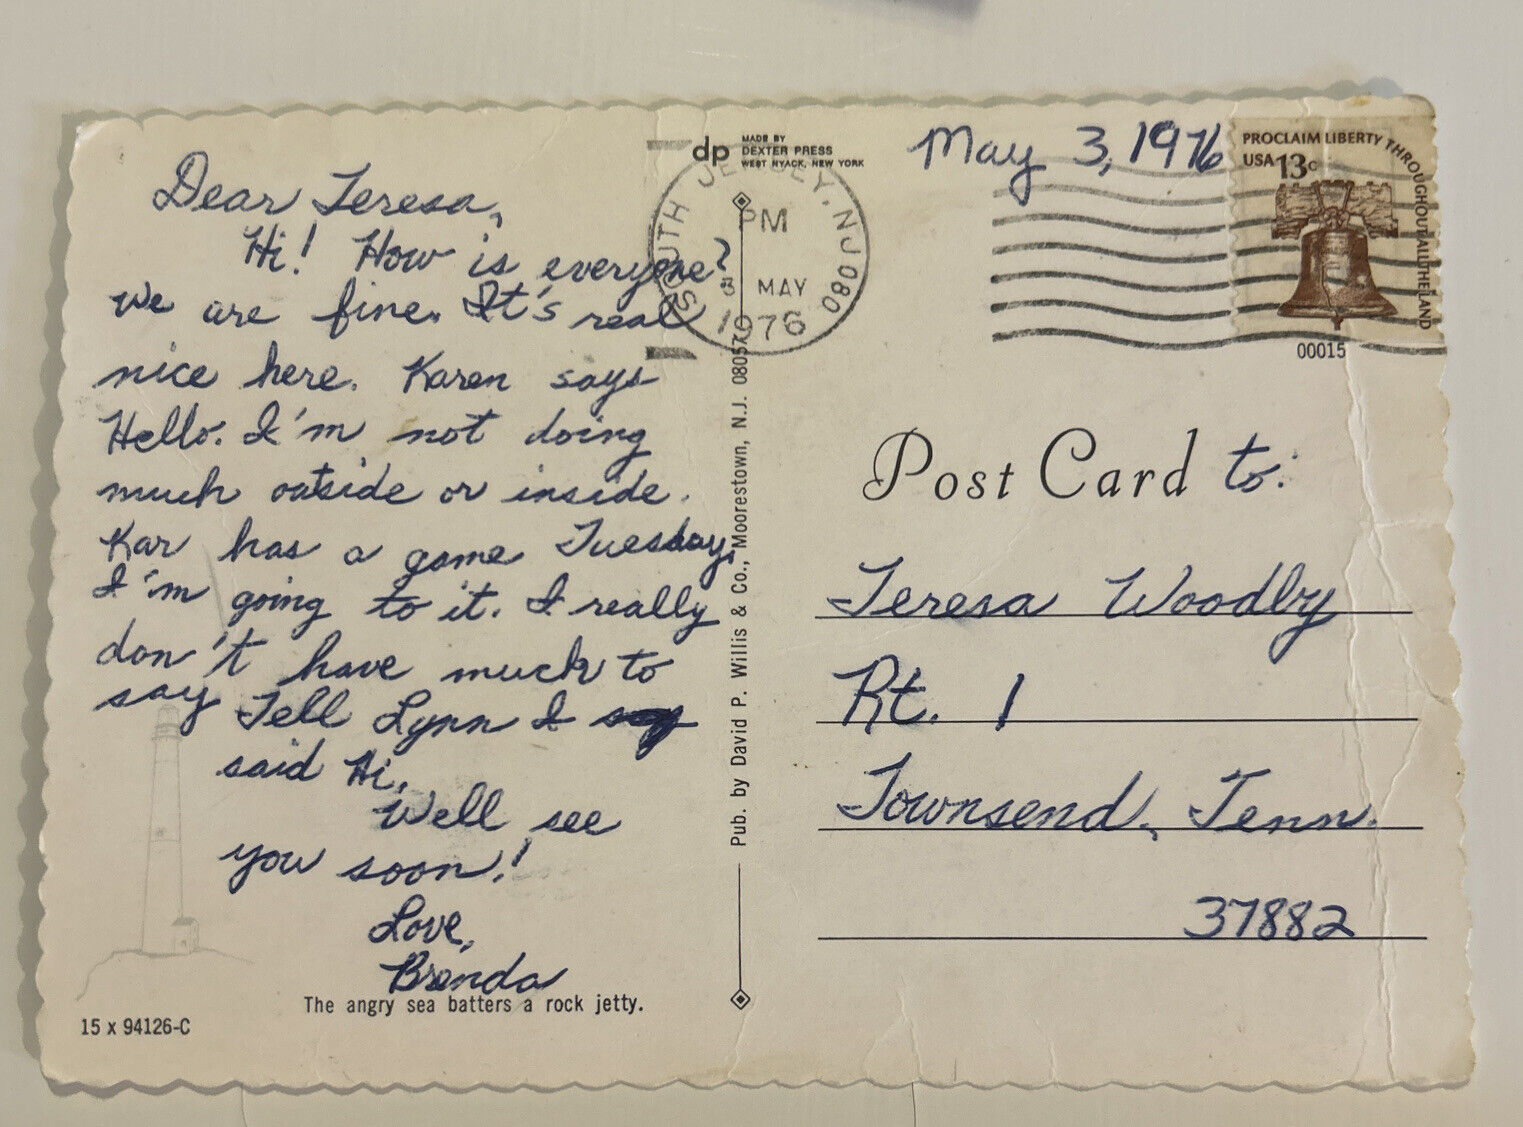 Dear Teresa,
Hi! How is everyone?
We are fine. It's real
nice here. Karen says
Hello. I'm not doing
much outside or inside.
Kar has a game Tuesday.
I'm going to it. I really
don't have much to
say Tell Lynn I
said Hi.
Well see
you soon!
Love,
Brenda
The angry sea batters a rock jetty.
15 x 94126-C
dp
MADE BY
DEXTER PRESS
WEST NYACK, NEW YORK
SOUTH JERSEY, NJ 080
PM
3 MAY
1976
Pub. by David P. Willis & Co., Moorestown, N.J. 08057
May 3, 1976
PROCLAIM LIBERTY THROUGHOUT ALL THE LAND
USA 13c
00015
Post Card to:
Teresa Woodby
Rt. 1
Townsend, Tenn.
37882